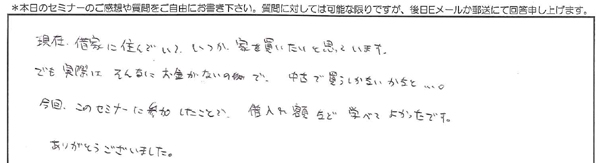 *本日のセミナーのご感想や質問をご自由にお書き下さい。質問に対しては可能な限りですが、後日Eメールか郵送にて回答申し上げます。
現在、借家に住んでいて、いつか、家を買いたいと思っています。
でも実際に そんなに お金がないので、中古で買うしかないかなと…。
今回、このセミナーに参加したことで、借入れ額など 学べて よかったです。
ありがとうございました。